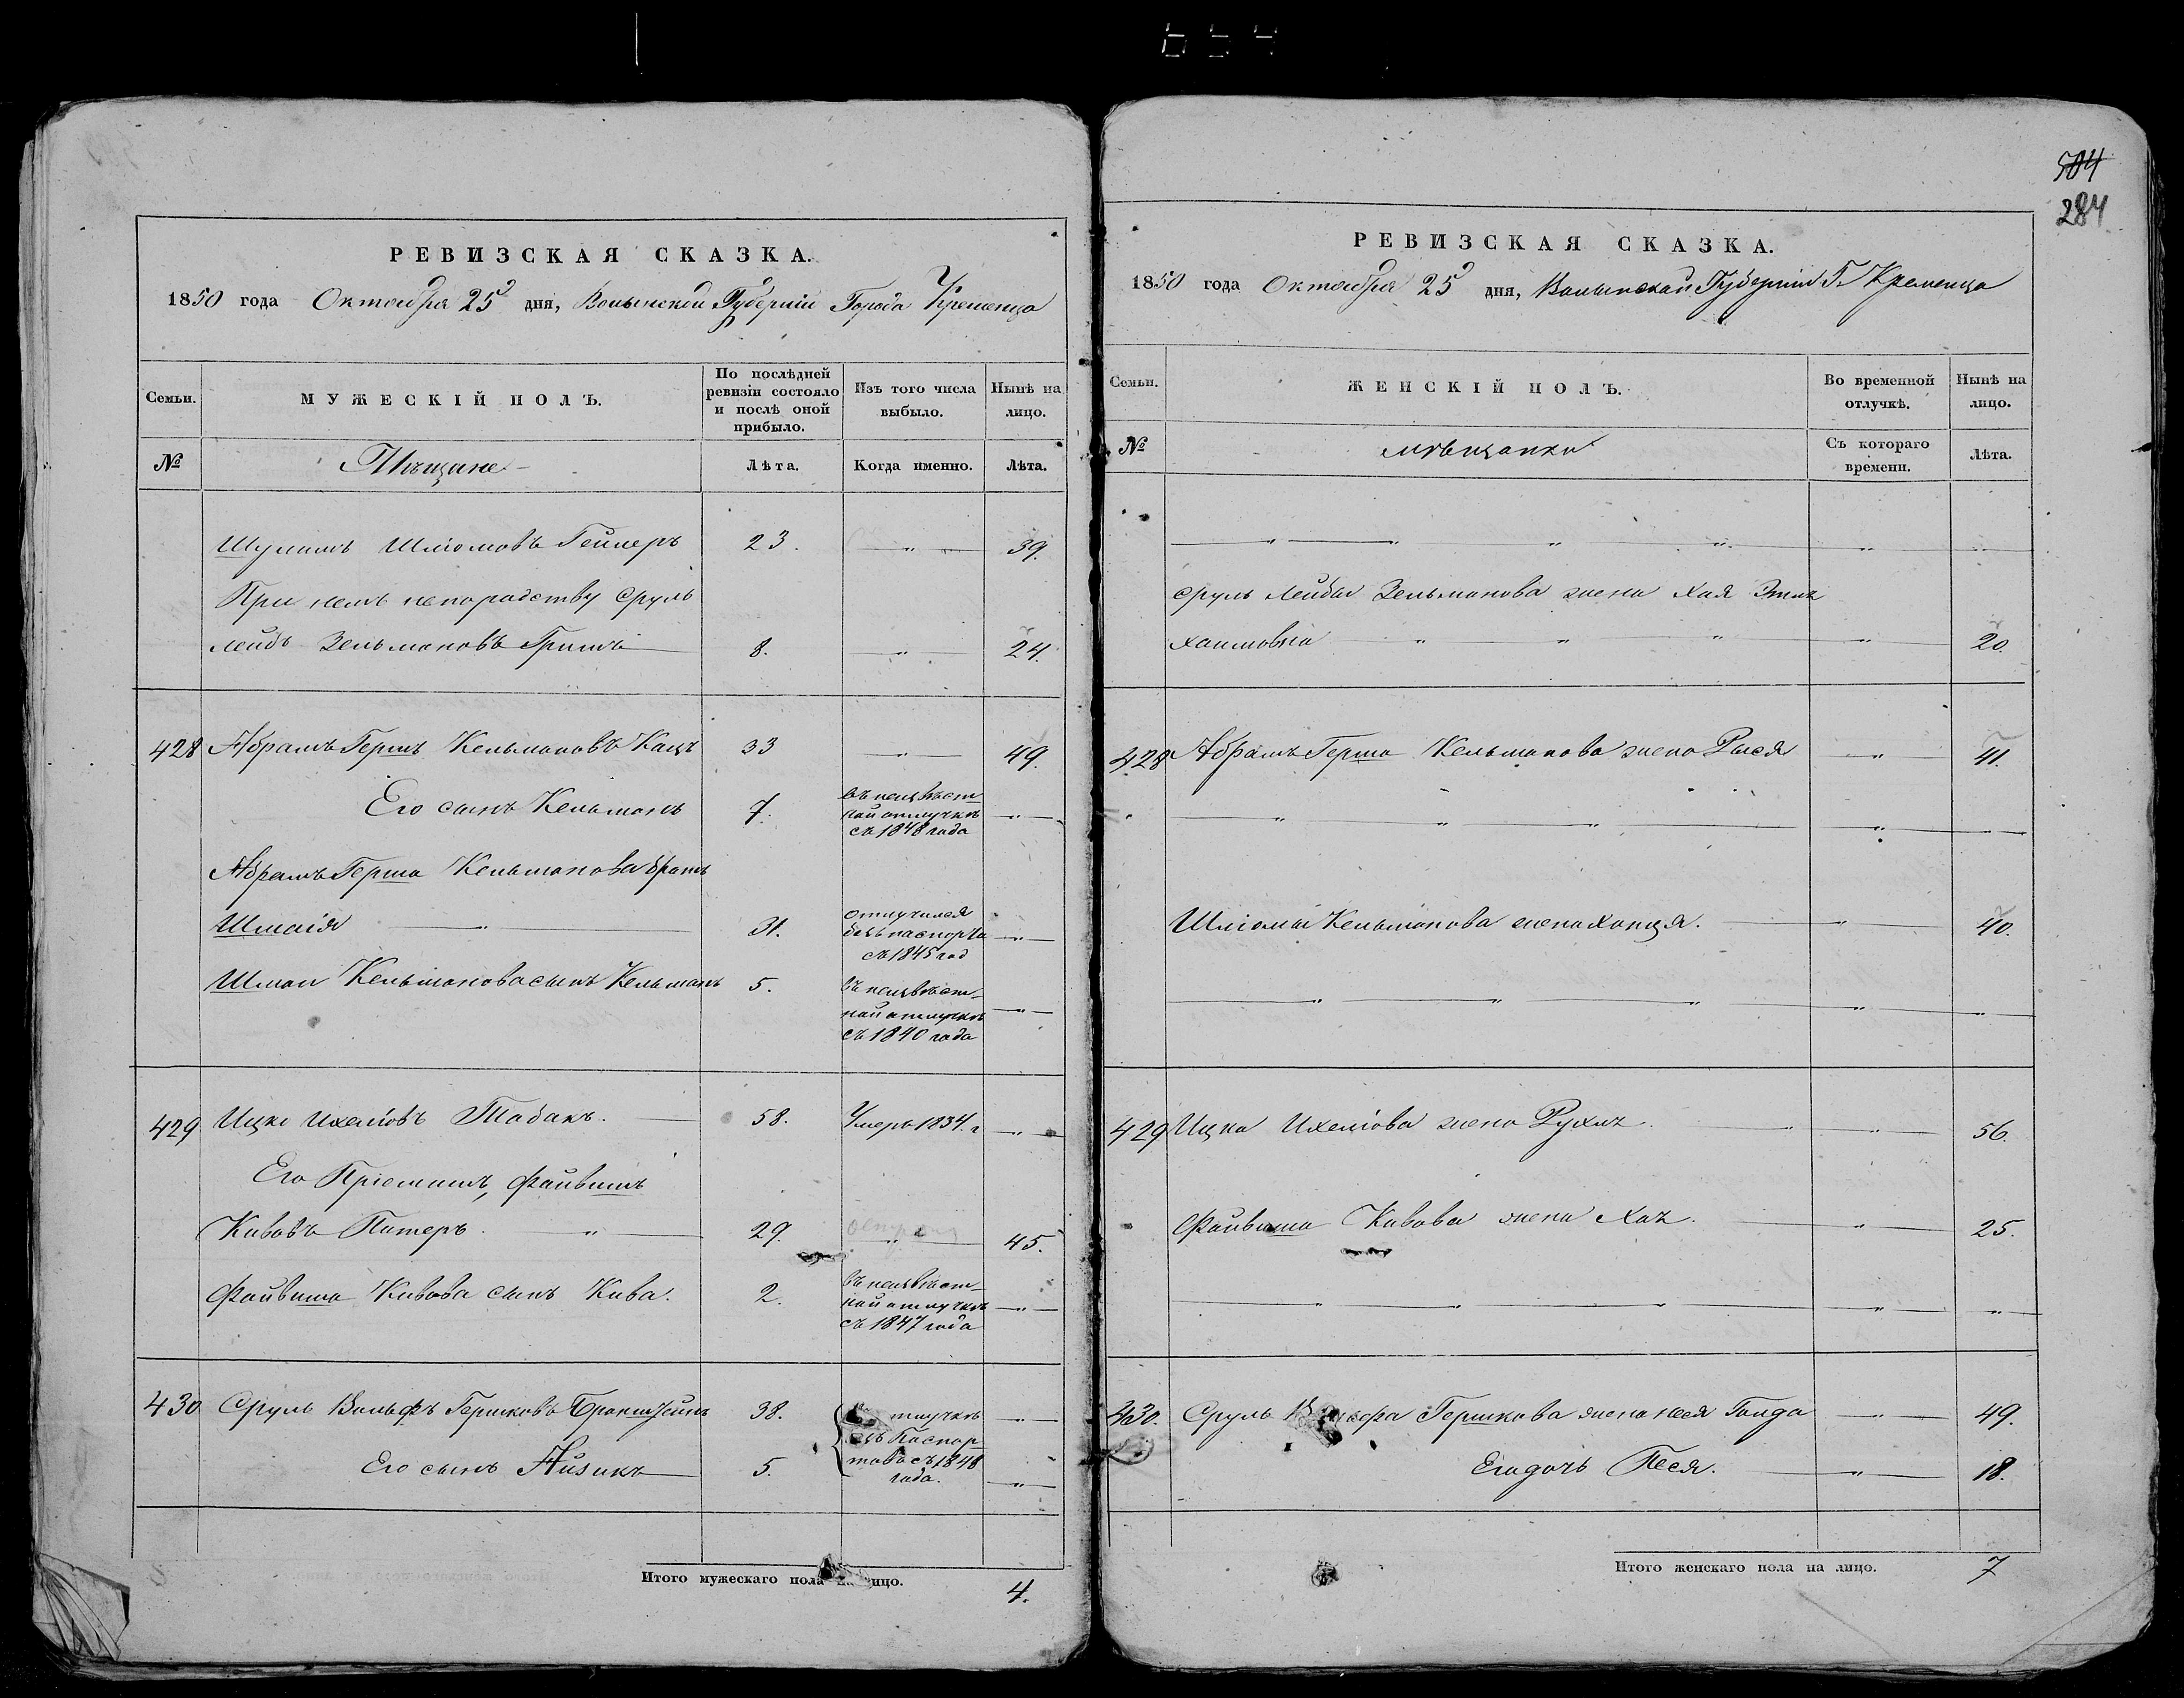 654
504
284
РЕВИЗСКАЯ СКАЗКА.
1850 года Октября 25 дня, Волынской Губерніи Города Кременца
Семьи.
МУЖЕСКІЙ ПОЛЪ.
По послѣдней ревизіи состояло и послѣ оной прибыло.
Изъ того числа выбыло.
Нынѣ на лицо.
№
Мѣщане
Лѣта.
Когда именно.
Лѣта.
Шліомовъ 23. „ 39.
При немъ непородству Сруль
Лейбъ Зельмановъ 8. „ 24.
428 Абрамъ Гершъ Кельмановъ Кацъ 33 „ 49.
Его сынъ Кельманъ 7. въ неизвѣстной отлучкѣ съ 1848 года „
Абрамъ Герша Кельманова братъ
Шмаія „ 31. отлучился безъ паспорта съ 1845 год „
Шмаи Кельманова сынъ Кельманъ 5. въ неизвѣстной отлучкѣ съ 1840 года „
429 Ицко Ихеліовъ Табакъ. 58. Умеръ 1834. г „
Его Пріемышъ, Файвишъ
Кивовъ Питеръ. „ 29. „ 45.
Файвиша Кивова сынъ Кива. 2. въ неизвѣстной отлучкѣ съ 1847 года „
430 Сруль Вольфъ Гершковъ 38. отлучкѣ Паспортовъ съ 1848 года. „
Его сынъ Айзикъ 5. „
Итого мужескаго пола на лицо. 4.
РЕВИЗСКАЯ СКАЗКА.
1850 года Октября 25 дня, Волынской Губерніи Г. Кременца
Семьи.
ЖЕНСКІЙ ПОЛЪ.
Во временной отлучкѣ.
Нынѣ на лицо.
№
Мѣщанки
Съ котораго времени.
Лѣта.
„ „ „ „ „
Сруль Лейбы Зельманова жена Хая
Хаимовна „ „ „ „ 20.
428 Абрамъ Герша Кельманова жена Рыся „ 41.
„ „ „ „ „
Шліомы Кельманова жена Ханця. „ 40.
„ „ „ „ „
429 Ицка Ихеліова жена Рухля „ „ 56.
Файвиша Кивова жена Хая. „ 25.
„ „ „ „ „ „
430. Сруль Вольфа Гершкова жена Неся Голда „ 49.
Его дочь Песя. „ 18.
Итого женскаго пола на лицо. 7